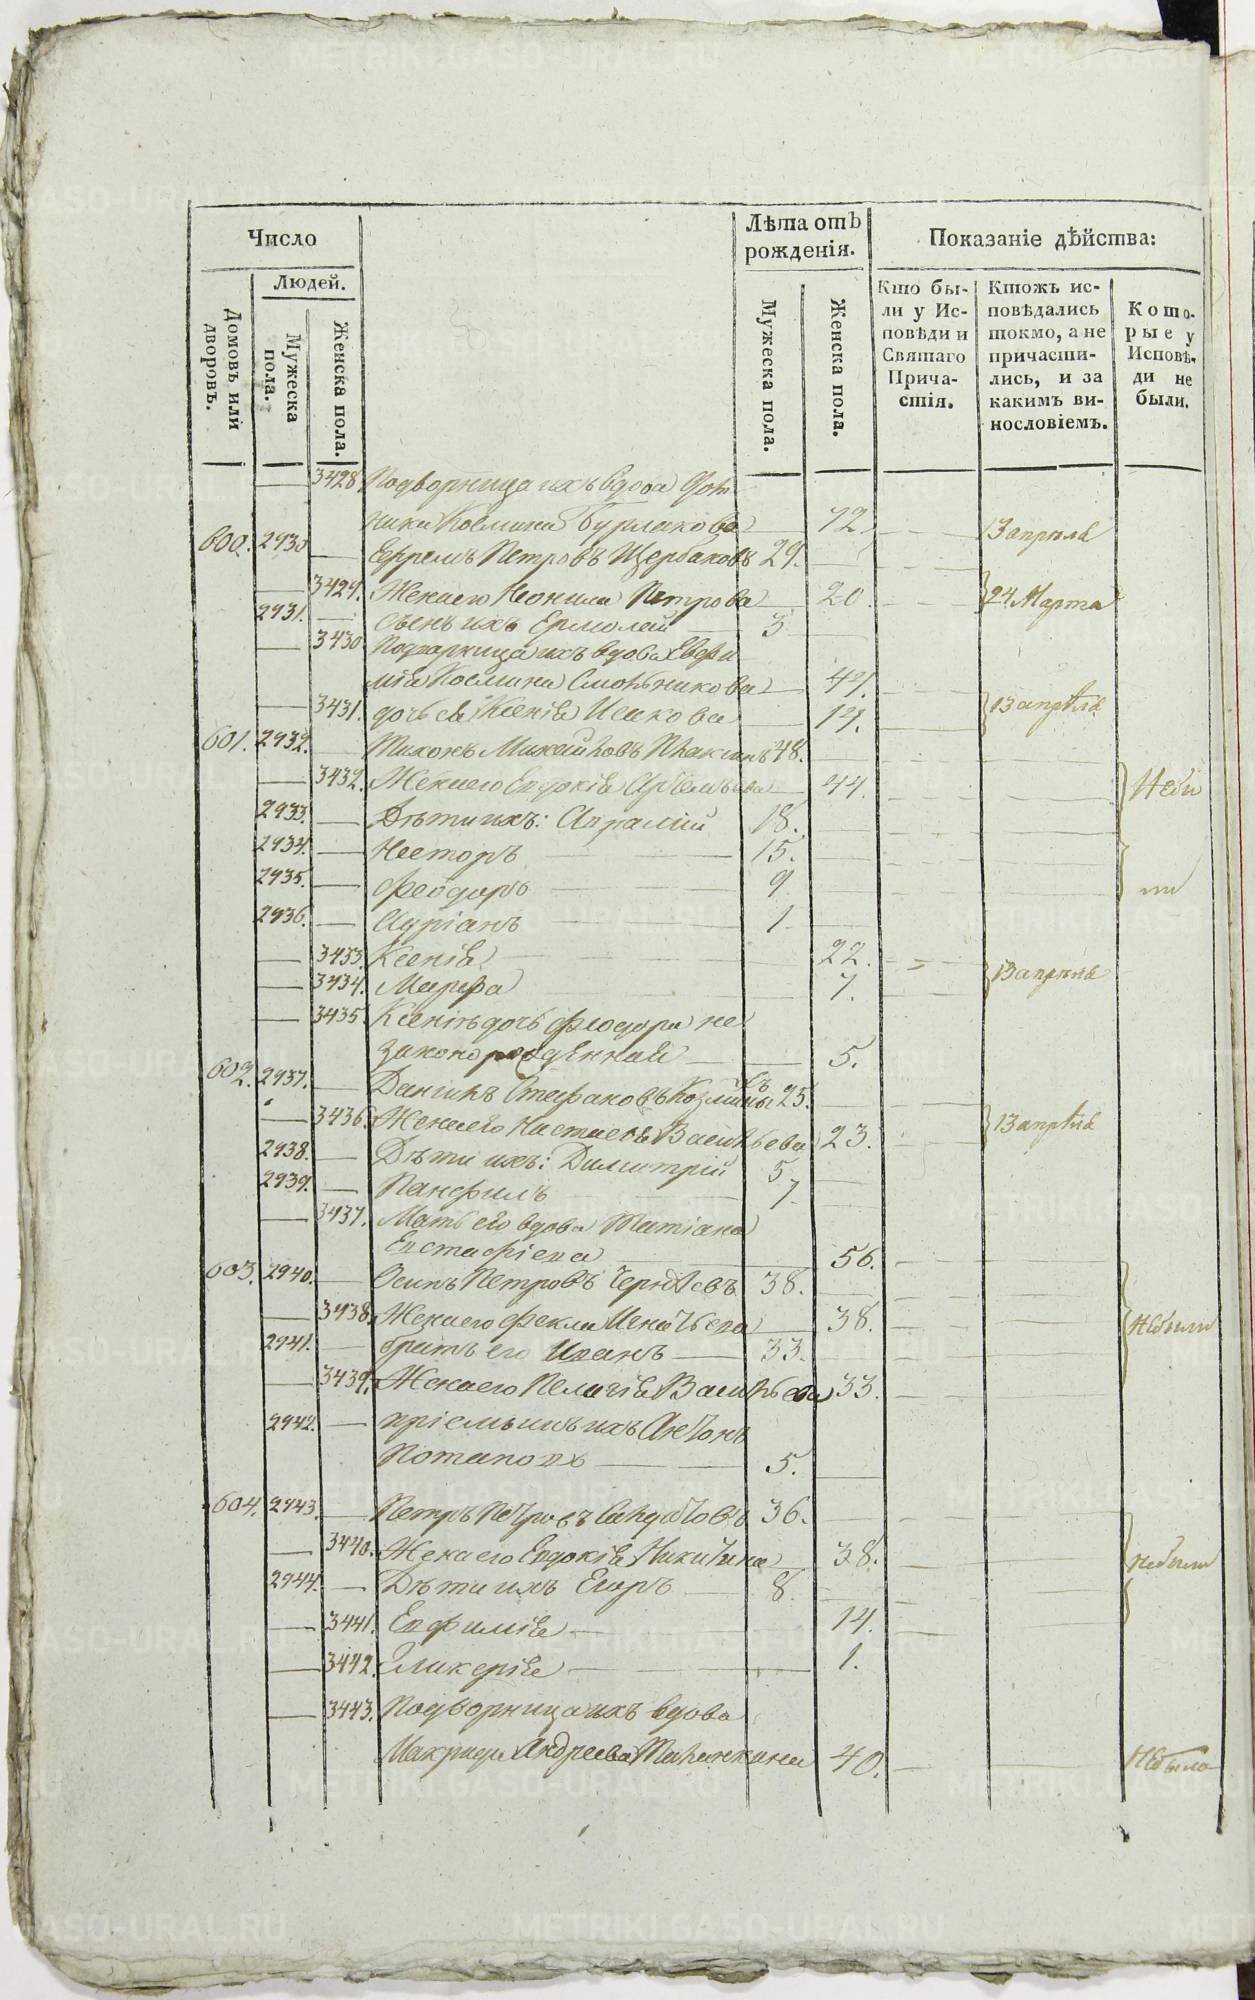 Число
Людей.
Домовъ или дворовъ.
Мужеска пола.
Женска пола.
Лѣта отъ
рожденія.
Мужеска пола.
Женска пола.
Показаніе дѣйства:
Кто бы-
ли у Ис-
повѣди и
Святаго
Прича-
стія.
Ктожъ ис-
повѣдались
токмо, а не
причасти-
лись, и за
какимъ ви-
нословіемъ.
Кото-
рые у
Исповѣ-
ди не
были.
3428 Подворница ихъ вдова Фот
ника Космина Бурлакова 72. 13 апрѣля
600. 2930 Ефремъ Петровъ Щербаковъ 29.
3429. Жена его Неонила Петрова 20. 24 Марта
2931. Сынъ ихъ Ермолай 3
3430 вдова Евфи
мія Космина 47.
3431. дочь ея Ксенія Исакова 17. 13 апрѣля
601. 2932. Тихонъ Михайловъ 48.
3432. Жена его Евдокія Артемьева 44. Небы
2933. Дѣти ихъ: Авраамій 18.
2934. Несторъ 15.
2935. Феодоръ 9
2936. Адріанъ 1
ли
3433. Ксенія 22. 13 апрѣля
3434. Марфа 7.
3435. Ксеніи дочь Феодора не
законорожденная 5.
602. 2937. Даніилъ Стефановъ 25.
3436. Жена его Настасья Васильева 23. 13 апрѣля
2938. Дѣти ихъ: Димитрій 5
2939. Панфилъ 1.
3437. Мать его вдова Татіана
Евстафіева 56.
603. 2940. Осипъ Петровъ 38.
3438. Жена его Фекла Игнатьева 38. Небыли
2941. братъ его Иванъ 33.
3439. Жена его Пелагія Васильева 33.
2942. пріемышъ ихъ Антонъ
Потаповъ 5.
604. 2943. Петръ Петровъ 36.
3440. Жена его Евдокія Никитина 38. Небыли
2944. Дѣти ихъ Егоръ 8.
3441. Евфимія 14.
3442. Гликерія 1.
3443. Подворница ихъ вдова
Макрида Андреева 40. Небыла
METRIKI.GASO-URAL.RU